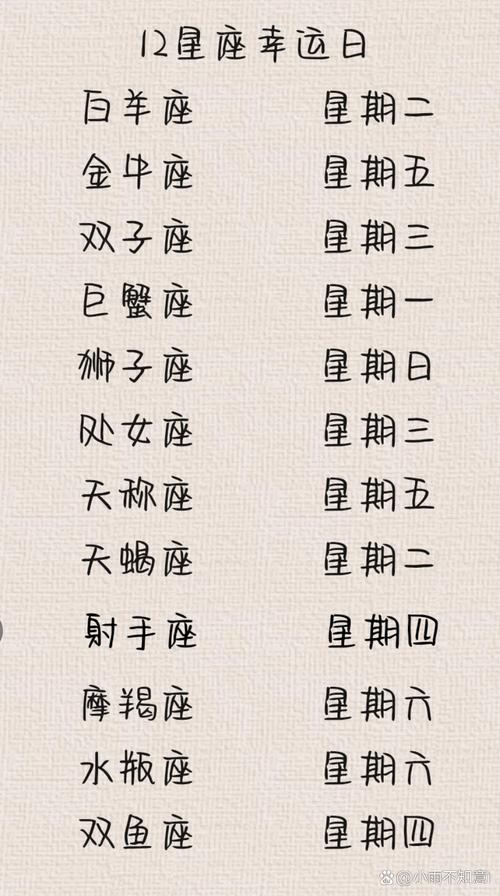 12星座幸运日
白羊座 星期二
金牛座 星期五
双子座 星期三
巨蟹座 星期一
狮子座 星期日
处女座 星期三
天称座 星期五
天蝎座 星期二
射手座 星期四
摩羯座 星期六
水瓶座 星期六
双鱼座 星期四
@小雨不知意